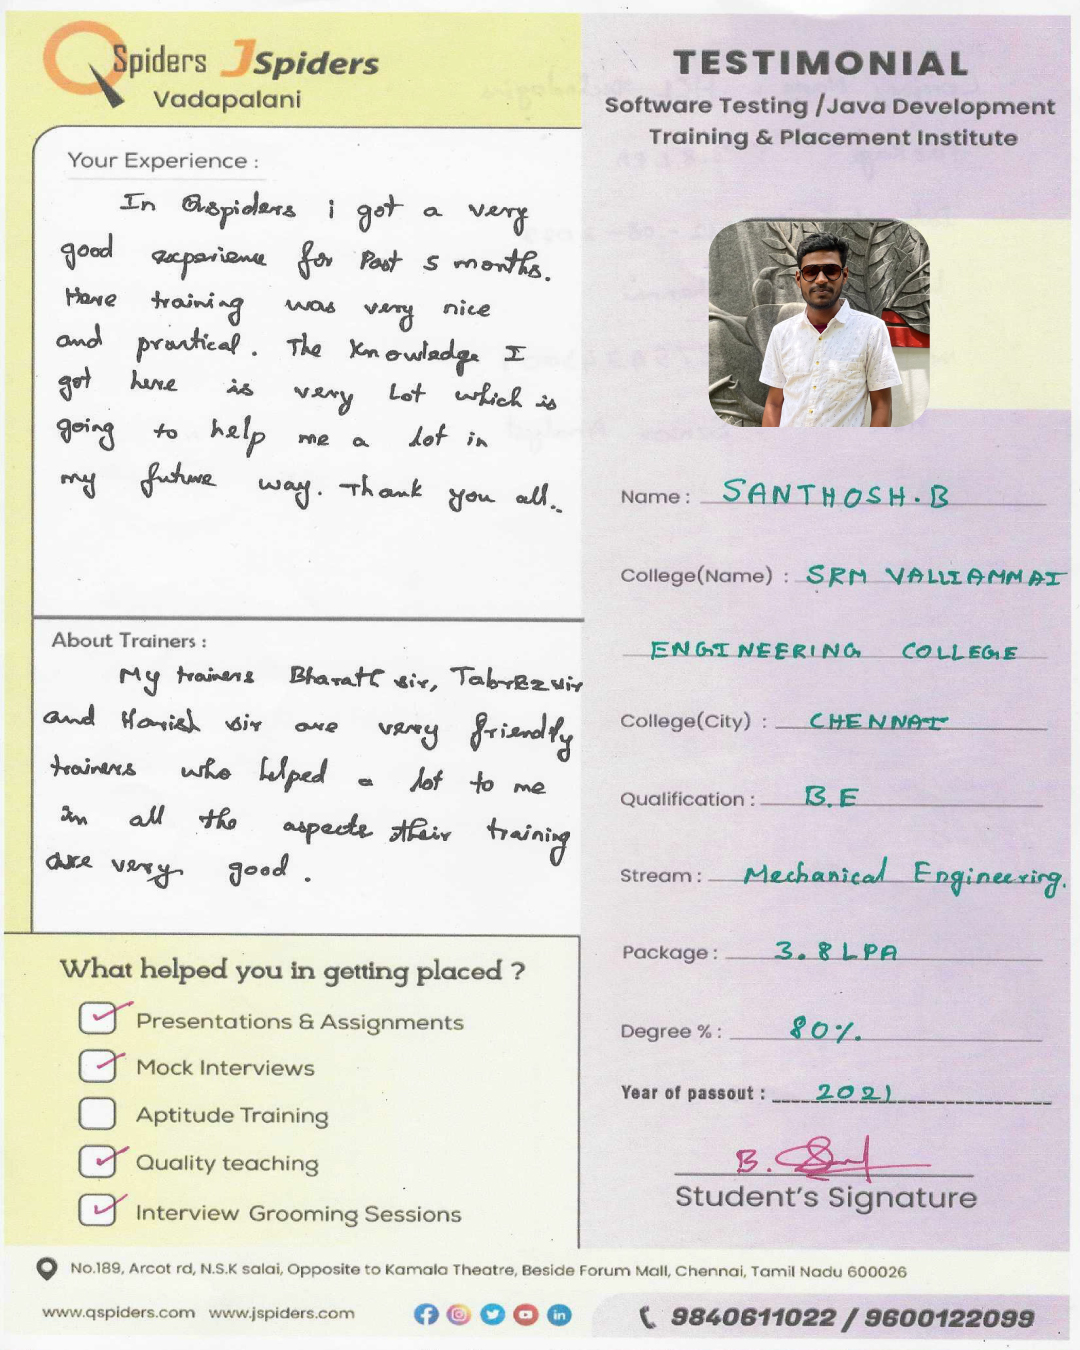 QSpiders JSpiders
Vadapalani
TESTIMONIAL
Software Testing /Java Development
Training & Placement Institute
Your Experience :
In Qspiders i got a very
good experience for Past 5 months.
Here training was very nice
and practical. The Knowledge I
got here is very Lot which is
going to help me a lot in
my future way. Thank you all..
About Trainers :
My trainers Bharath sir, Tabrez sir
and Harish sir are very friendly
trainers who helped a lot to me
in all the aspects their training
are very good.
What helped you in getting placed ?
Presentations & Assignments
Mock Interviews
Aptitude Training
Quality teaching
Interview Grooming Sessions
Name : SANTHOSH.B
College(Name) : SRM VALLIAMMAI
ENGINEERING COLLEGE
College(City) : CHENNAI
Qualification : B.E
Stream : Mechanical Engineering.
Package : 3.8 LPA
Degree % : 80%.
Year of passout : 2021
B.
Student's Signature
No.189, Arcot rd, N.S.K salai, Opposite to Kamala Theatre, Beside Forum Mall, Chennai, Tamil Nadu 600026
www.qspiders.com www.jspiders.com
9840611022 / 9600122099